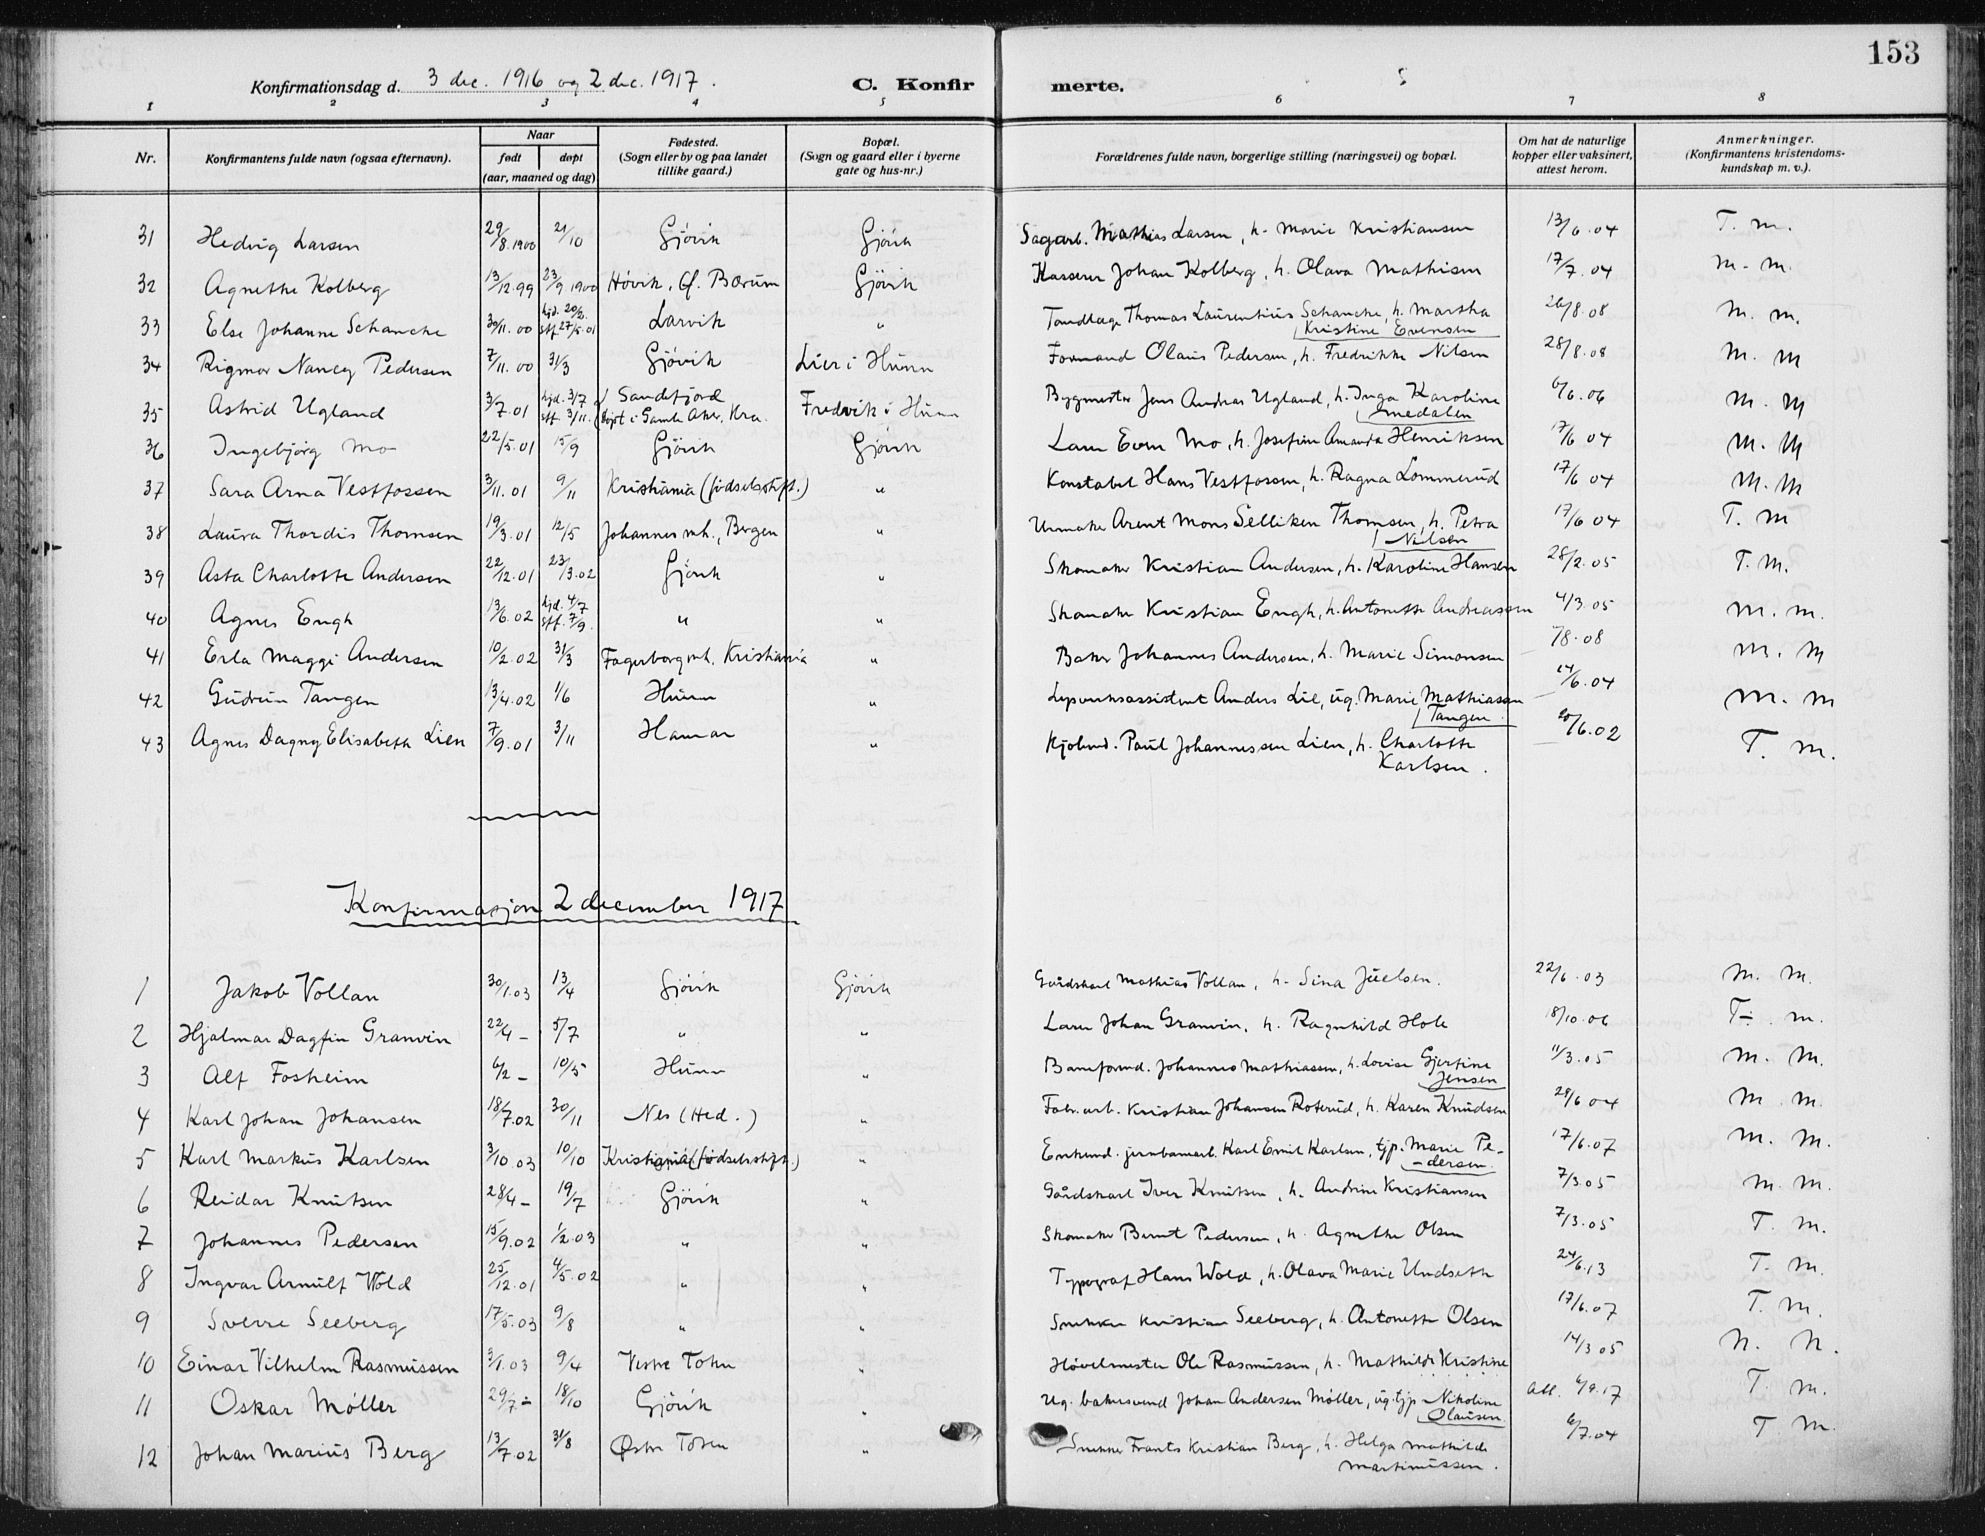 153
Konfirmationsdag d. 3 dec. 1916 og 2 dec. 1917. C. Konfir merte.
1 2 3 4 5 6 7 8
Nr. Konfirmantens fulde navn (ogsaa efternavn). Naar født døpt (aar, maaned og dag) Fødested. (Sogn eller by og paa landet tillike gaard.) Bopæl. (Sogn og gaard eller i byerne gate og hus-nr.) Forældrenes fulde navn, borgerlige stilling (næringsvei) og bopæl. Om hat de naturlige kopper eller vaksinert, attest herom. Anmerkninger. (Konfirmantens kristendoms-kundskap m. v.).
31 Hedvig Larsen 29/8.1900 21/10 Gjövik Gjövik Sagarb. Mathias Larsen, h. Marie Kristiansen 13/6.04 T. m.
32 Agnethe Kolberg 13/12.99 23/9 1900 Hövik, Ø. Bærum Gjövik Kasserer Johan Kolberg, h. Olava Mathisen 17/7.04 M. M.
33 Else Johanne Schancke 30/11.00 hjd. 20/2. stf. 27/5.01 Larvik " Tandlæge Thomas Laurentius Schancke, h. Martha Kristine Evensen 26/8.08 M. m.
34 Rigmor Nancy Pedersen 7/11.00 31/3 Gjövik Lier i Hunn Formand Olaus Pedersen, h. Fredrikke Nilsen 28/8.08 M. M
35 Astrid Ugland 3/7.01 hjd. 3/7 stf. 3/11. Sandefjord (döpt i Gamle Aker, Kra. Fredvik i Hunn Bygmester Jens Andreas Ugland, h. Inga Karoline Smedalen 6/6.06 M. M
36 Ingebjörg Mo 22/5.01 15/9 Gjövik Gjövik Lærer Even Mo, h. Josefine Amanda Henriksen 17/6 04 M. M
37 Sara Arna Vestfossen 3/11.01 9/11 Kristiania (födselsstift.) " Konstabel Hans Vestfossen, h. Ragna Lommerud 17/6 04 M. M
38 Laura Thordis Thomsen 19/3.01 12/5 Johannes mh., Bergen " Urmaker Arent Mons Selliken Thomsen, h. Petra Nilsen 17/6 04 T. M
39 Asta Charlotte Andersen 22/12.01 23/3.02 Gjövik " Skomaker Kristian Andersen, h. Karoline Hansen 28/2.05 T. M.
40 Agnes Engh 13/6.02 hjd. 4/7 stf. 7/9. " " Skomaker Kristian Engh, h. Antonette Andreassen 4/3.05 M. m.
41 Erla Maggi Andersen 10/2.02 31/3 Fagerborg mh, Kristiania " Baker Johannes Andersen, h. Marie Simonsen 7/8.08 M. M
42 Gudrun Tangen 13/4.02 1/6 Hunn " Lysverksassistent Anders Lie, ug. Marie Mathiassen Tangen. 24/6.04 M. M
43 Agnes Dagny Elisabeth Lien 7/9.01 3/11 Hamar " Kjøbmd. Paul Johannessen Lien, h. Charlotte Karlsen. 20/6.02 T. M.
Konfirmasjon 2 december 1917
1 Jakob Vollan 30/1.03 13/4 Gjövik Gjövik Gårdskarl Mathias Vollan, h. Sina Juelsen. 22/6.03 M. M.
2 Hjalmar Dagfin Granvin 22/4 - 5/7 " " Lærer Johan Granvin, h. Ragnhild Hole 18/10.06 T. m.
3 Alf Fosheim 6/2 - 10/5 Hunn " Baneformd. Johannes Mathiassen, h. Lovise Gjertine Jensen 11/3.05 M. M.
4 Karl Johan Johansen 18/7.02 30/11 Nes (Hed.) " Fabr. arb. Kristian Johansen Roterud, h. Karen Knudsen 28/6 04 M. M.
5 Karl Markus Karlsen 3/10.03 10/10 Kristiania (fødselsstift.) " Enkemd. jernbanearb. Karl Emil Karlsen, tjp. Marie Pe-dersen. 17/6.07 M. M.
6 Reidar Knutsen 28/4 - 19/7 Gjövik " Gårdskarl Iver Knutsen, h. Andrine Kristiansen 7/3.05 M. M.
7 Johannes Pedersen 15/9.02 1/2.03 " " Skomaker Bernt Pedersen, h. Agnethe Olsen 7/3.05 T. M.
8 Ingvar Arnulf Wold 25/12.01 4/5.02 " " Typograf Hans Wold, h. Olava Marie Undseth 24/6.13 T. M.
9 Sverre Seeberg 17/5.03 9/8 " " Snekker Kristian Seeberg, h. Antonette Olsen 17/6.07 T. M.
10 Einar Vilhelm Rasmussen 3/1.03 9/4 Vestre Toten " Høvelmester Ole Rasmussen, h. Mathilde Kristine 14/3 05 N. N.
11 Oskar Møller 29/7 - 18/10 Gjövik " Ug. bakersvend Johan Andersen Møller, ug. tjp Nikoline Olausen. Att. 6/9.17 T. M.
12 Johan Marius Berg 13/7.02 31/8 Østre Toten " Snekker Frants Kristian Berg, h. Helga Mathilde Martinussen. 6/7.04 T M.